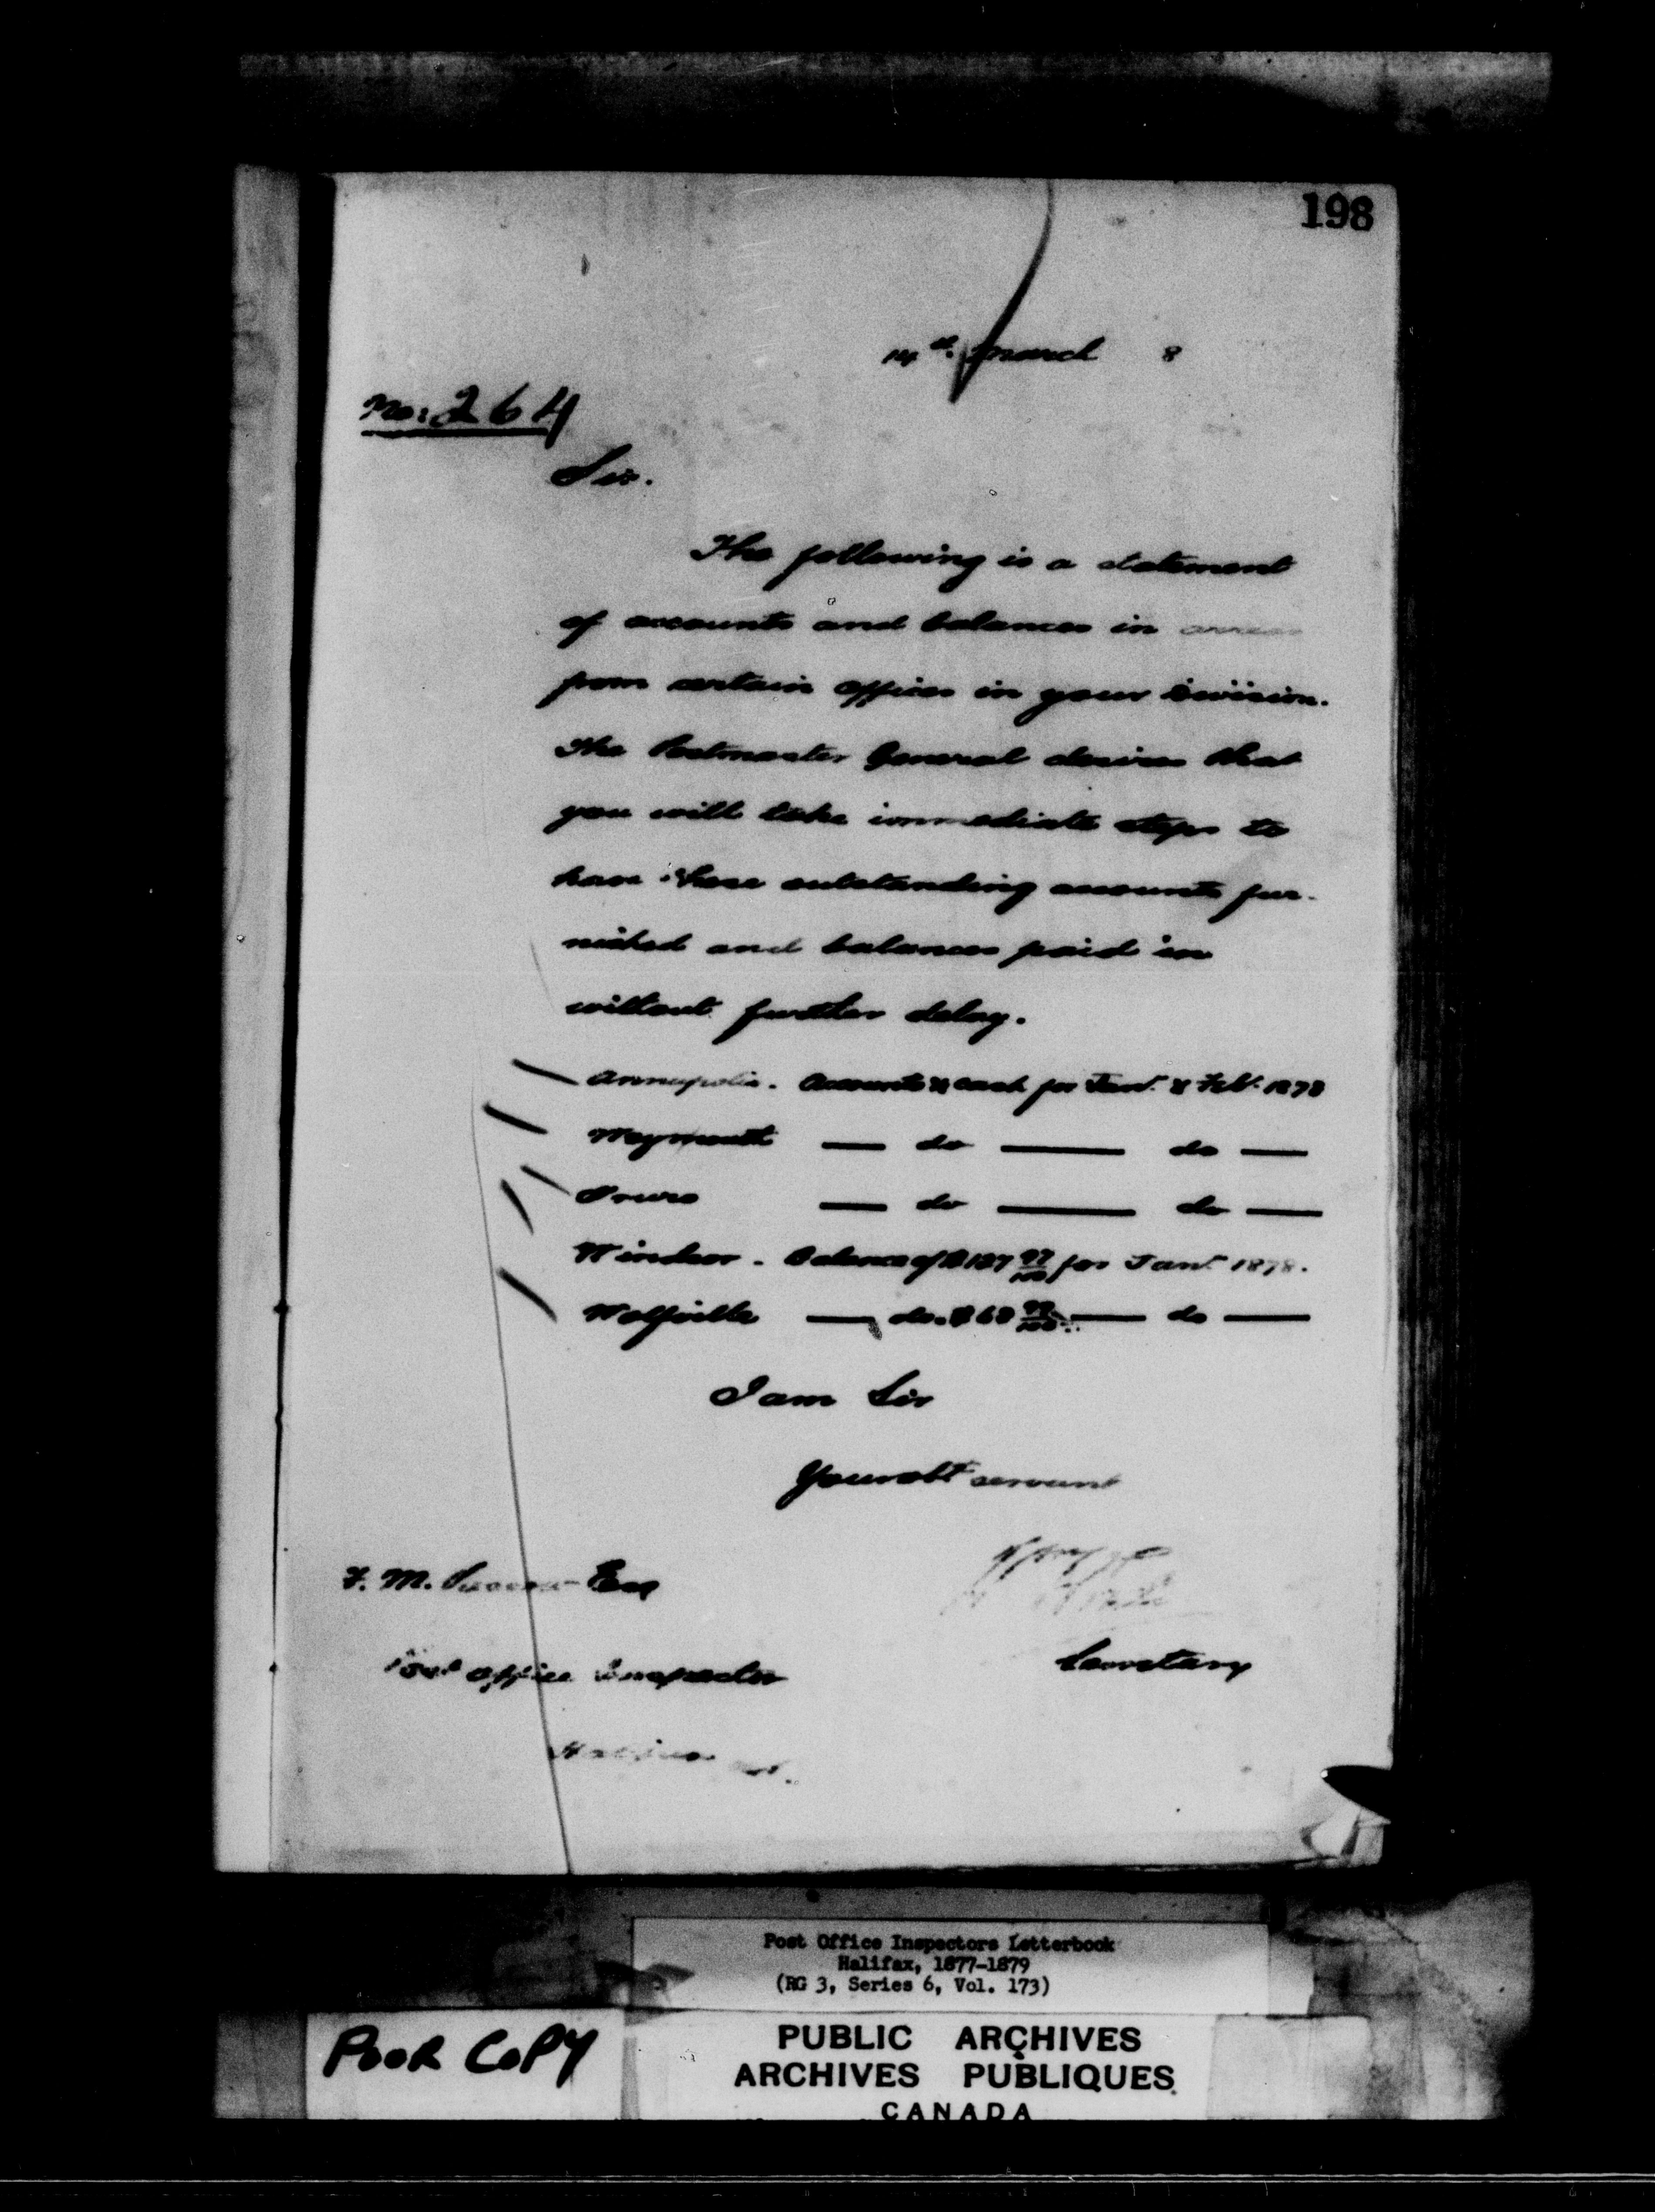 198
14th March 8
No: 264
Sir.
The following is a statement
of accounts and balances in arrear
from certain offices in your division.
The Postmaster General desires that
you will take immediate steps to
have these outstanding accounts fur-
nished and balances paid in
without further delay.
Annapolis. Accounts & cash for Jany. & Feb. 1878
Weymouth — do — do —
Truro — do — do —
Windsor. Balance of $ 97/100 for Jany. 1878.
Wolfville — do. $68 — do —
I am Sir
Your obt servant
F. M. Esq
Secretary
Post Office Inspector
Halifax
Post Office Inspectors Letterbook
Halifax, 1877-1879
(RG 3, Series 6, Vol. 173)
POOR COPY
PUBLIC ARCHIVES
ARCHIVES PUBLIQUES
CANADA